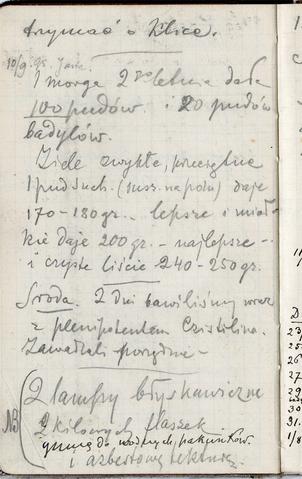 trzymać o Klice.
10/9. 95. Jank.
1 morga 2 letnia dała
100 pudów i 20 pudów
badylów.
Ziele zwykłe, przeciętne
1 pud such. (susz. na polu) daje
170-180 gr.. lepsze i miał-
kie daje 200 gr. - najlepsze -
i czyste liście 240-250 gr.
Środa. 2 dni bawiliśmy wraz
z plenipotentem Czistilina.
Zawadzki porządnie -
NB 2 lampy błyskawiczne
2 kilowych flaszek
gumę do wodnych pakunków
i azbestową tekturę.
D
23/
25
26
27
29
30
31.
1/8